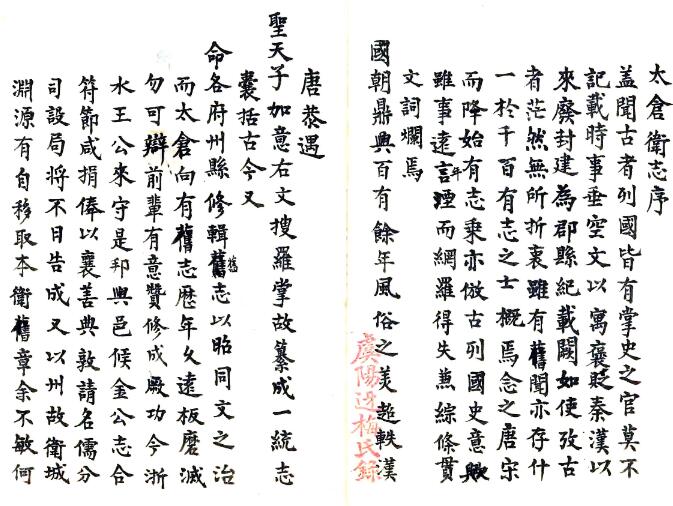 太倉衛志序
盖聞古者列國皆有掌史之官莫不
記載時事垂空文以寓褒貶秦漢以
來廢封建為郡縣紀載闕如使攷古
者茫然無所折衷雖有舊聞亦存什
一於千百有志之士概焉念之唐宋
而降始有志乘亦倣古列國史意歟
雖事遠言湮而網羅得失兼綜條貫
文詞斕焉
國朝鼎興百有餘年風俗之美超軼漢
虞陽邊梅氏録
唐恭遇
聖天子加意右文搜羅掌故纂成一統志
囊括古今又
命各府州縣修輯舊志以昭同文之治
舊
而太倉向有舊志歷年久遠板磨滅
勿可辯前輩有意贊修成厥功今浙
水王公來守是邦與邑候金公志合
符節咸捐俸以襄善典敦請名儒分
司設局將不日告成又以州故衛城
淵源有自移取本衛舊章余不敏何